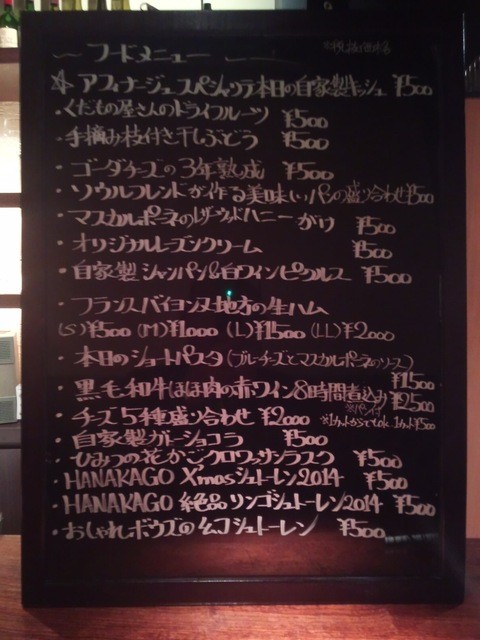 〜フードメニュー〜
☆ アフィナージュスペシャリテ本日の自家製キッシュ ¥500
・くだもの屋さんのドライフルーツ ¥500
・手摘み枝付き干しぶどう ¥500
・ゴーダチーズの3年熟成 ¥500
・ソウルフレンドが作る美味しいパンの盛り合わせ¥500
・マスカルポーネのレザーウッドハニーがけ ¥500
・オリジナルレーズンクリーム ¥500
・自家製シャンパン&白ワインピクルス ¥500
・フランスバイヨンヌ地方の生ハム
(S)¥500 (M)¥1000 (L)¥1500 (LL)¥2000
・本日のショートパスタ(ブルーチーズとマスカルポーネのソース)
¥1500
・黒毛和牛ほほ肉の赤ワイン8時間煮込み ¥2500
※パン付
・チーズ5種盛り合わせ ¥2000 ※1カットからでもok 1カット¥500
・自家製ガトーショコラ ¥500
・ひみつの花かごクロワッサンラスク ¥500
・HANAKAGO X'masシュトーレン2014 ¥500
・HANAKAGO 絶品リンゴシュトーレン2014 ¥500
・おしゃれボウズのムコシュトーレン ¥500